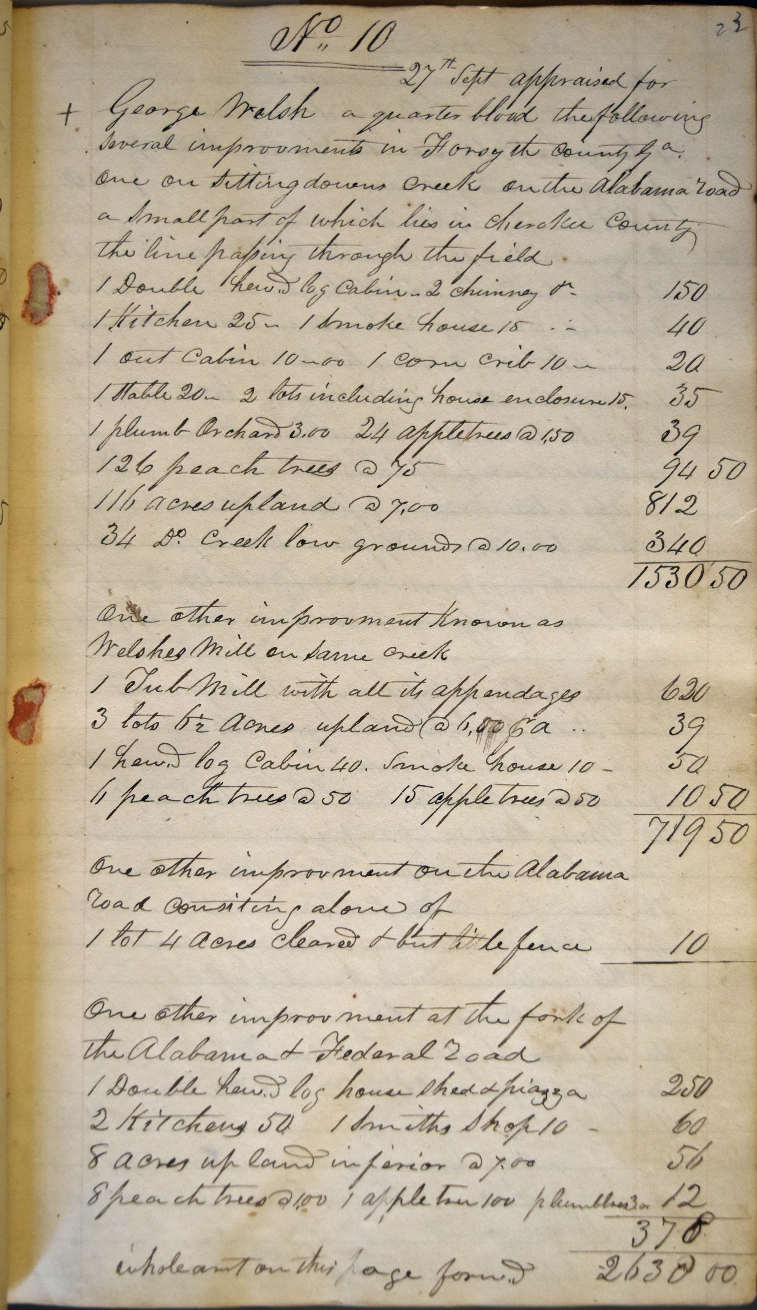 23
No 10
27th Sept appraised for
+ George Welsh a quarter blood the following
several improvments in Forsyth County Ga.
One on Sittingdowns Creek on the Alabama road
a small part of which lies in cherokee County
the line passing through the field
1 Double hewd log cabin 2 chimney &c 150
1 Kitchen 25 1 Smoke house 15 40
1 out Cabin 10.00 1 corn crib 10 20
1 Stable 20 2 lots including house enclosure 15. 35
1 plumb Orchard 3.00 24 appletrees @ 1,50 39
126 peach trees @ 75 94 50
116 acres upland @ 7,00 812
34 Do. Creek low grounds @ 10.00 340
1530 50
One other improvment Known as
Welshes Mill on same creek
1 Tub Mill with all its appendages 620
3 lots 6½ Acres upland @ 6,00 pa 39
1 hewd log Cabin 40. Smoke house 10 - 50
6 peach trees @ 50 15 appletrees @ 50 10 50
719 50
One other improvment on the Alabama
road consiting alone of
1 lot 4 Acres cleared & but little fence 10
One other improvment at the fork of
the Alabama & Federal road
1 Double hewd log house shed & piazza 250
2 Kitchens 50 1 Smiths Shop 10 - 60
8 acres upland inferior @ 7.00 56
8 peach trees @ 1,00 1 apple tree 100 plumbtrees 3 12
378
whole amt on this page forwd 2638 00